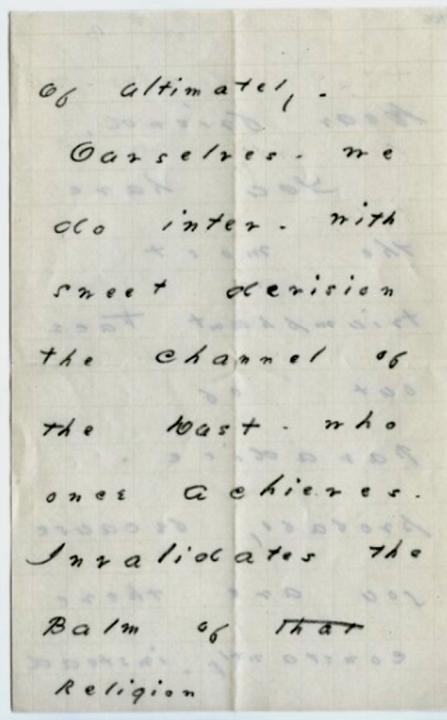 of ultimately -
Ourselves - we
do inter - with
sweet derision
the channel of
the Dust - who
once achieves -
Invalidates the
Balm of that
Religion